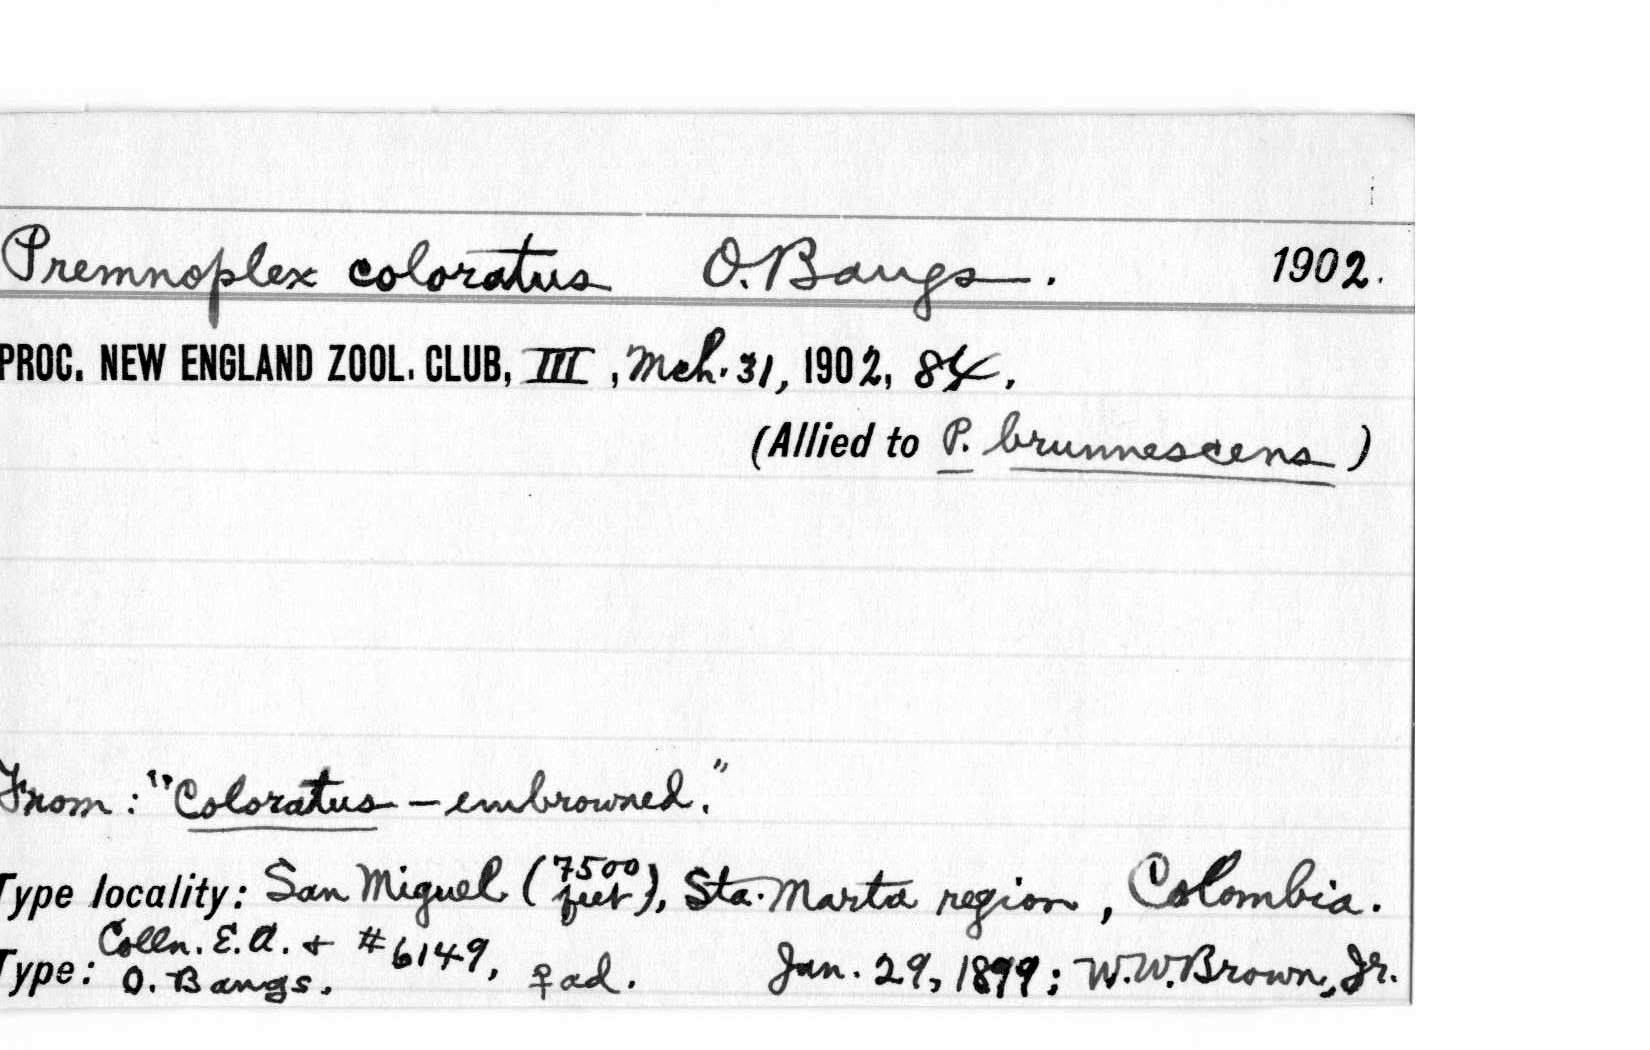 Premnoplex coloratus O. Bangs. 1902.
PROC. NEW ENGLAND ZOOL. CLUB, III, Mch. 31, 1902, 84.
(Allied to P. brunnescens)
From: "Coloratus — embrowned."
Type locality: San Miguel (7500 feet), Sta. Marta region, Colombia.
Type: Colln. E.A. & O. Bangs. #6149, ♀ ad. Jan. 29, 1899; W.W. Brown, Jr.